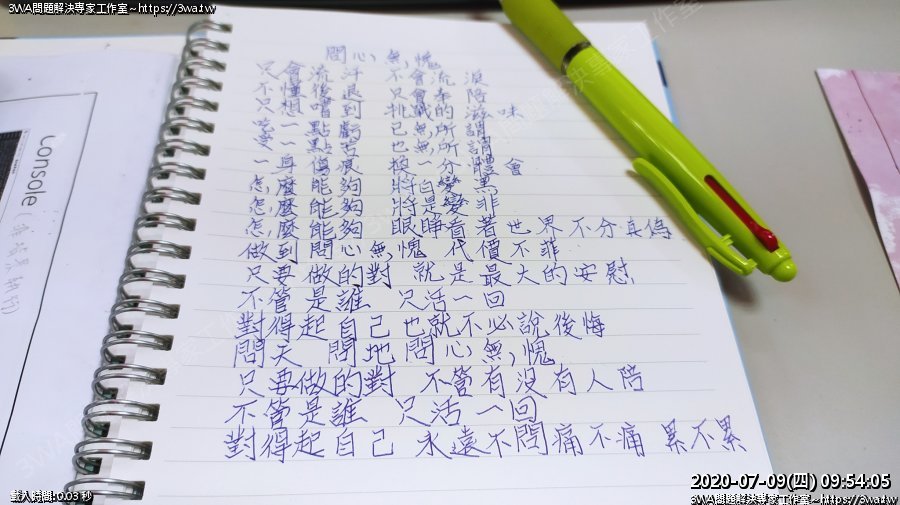 3WA問題解決專家工作室~https://3wa.tw
問心無愧
只會流汗 不會流淚
不懂後退 只會奉陪
只想嚐到 挑戰的滋味
吃一點虧 已無所謂
受一點苦 也無所謂
一身傷痕 換一分體會
怎麼能夠 將白變黑
怎麼能夠 將是變非
怎麼能夠 眼睜看著世界不分真偽
做到問心無愧 代價不菲
只要做的對 就是最大的安慰
不管是誰 只活一回
對得起自己也就不必說後悔
問天 問地 問心無愧
只要做的對 不管有沒有人陪
不管是誰 只活一回
對得起自己 永遠不問痛不痛 累不累
Console
載入時間: 0.03 秒
2020-07-09(四) 09:54:05
3WA問題解決專家工作室~https://3wa.tw